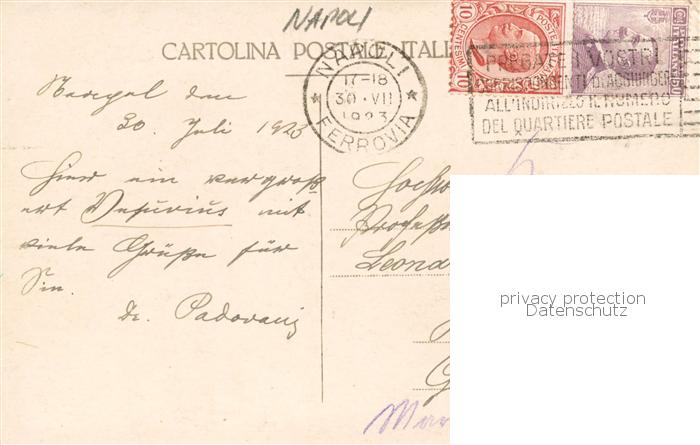 NAPOLI
CARTOLINA POSTALE ITALI
NAPOLI
17-18
30 · VII
1923
FERROVIA
10 CENTESIMI 10
CENT. 50
PREGATE I VOSTRI
CORRISPONDENTI D'AGGIUNGERE
ALL'INDIRIZZO IL NUMERO
DEL QUARTIERE POSTALE
Neapel den
30. Juli 1923
Hier ein vergröß
ert Vesuvius mit
viele Grüße für
Sie.
Dr. Padovani
Hochw
Professo
Leona
privacy protection
Datenschutz